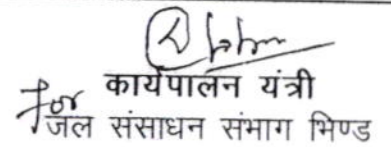 कार्यपालन यंत्री
For जल संसाधन संभाग भिण्ड